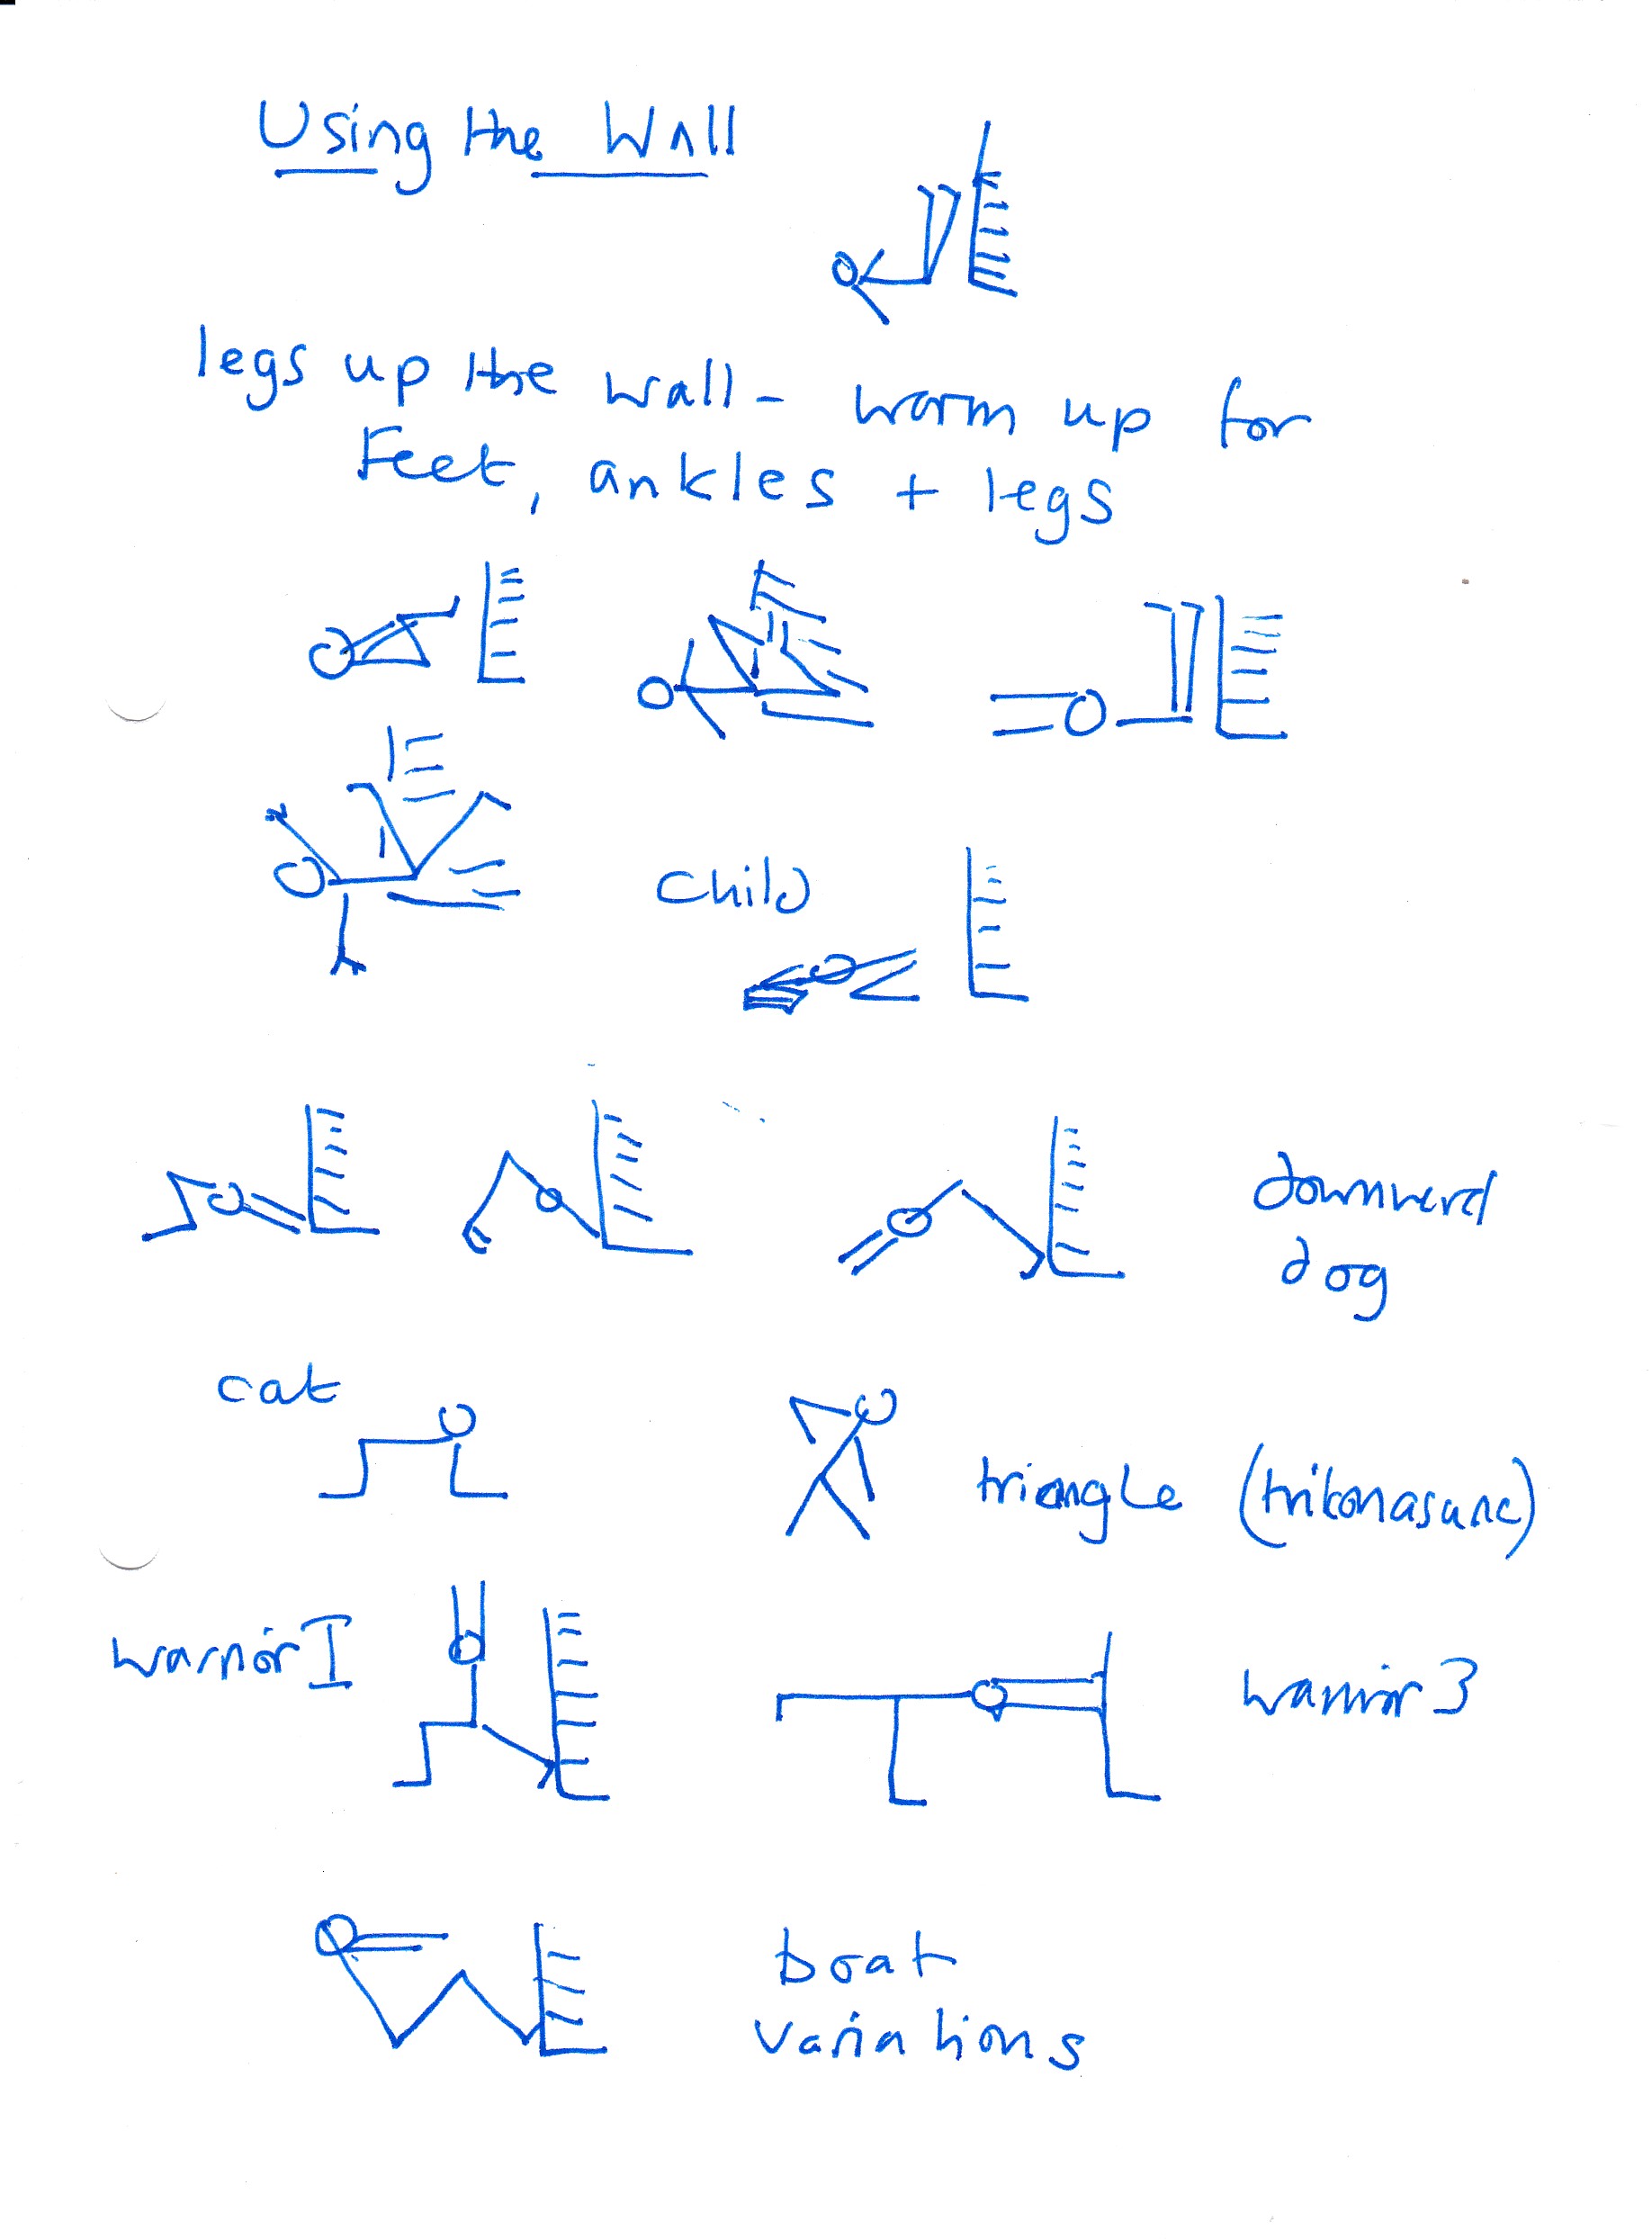 Using the Wall
legs up the wall - warm up for
Feet, ankles + legs
Child
downward
dog
cat
triangle (trikonasana)
warrior I
warrior 3
boat
variations